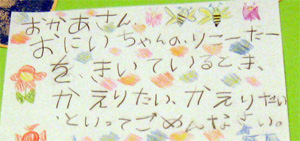 おかあさん、
おにいちゃんの、りこーだー
を、きいているとき、
かえりたい、かえりたい
といってごめんなさい。